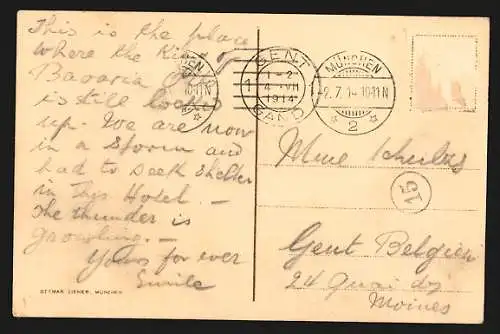 This is the place
where the King of
Bavaria
is still locked
up. We are now
in a storm and
had to seek shelter
in this Hotel. —
The thunder is
growling. —
Yours for ever
Emile
OTTMAR ZIEHER, MÜNCHEN
CHEN
10-11N
GENT
1
1-2
4 VII
1914
1
GAND
MÜNCHEN
2.7.14 10-11N
* 2 *
Mme
15
Gent Belgien
24 Quai des
Moines